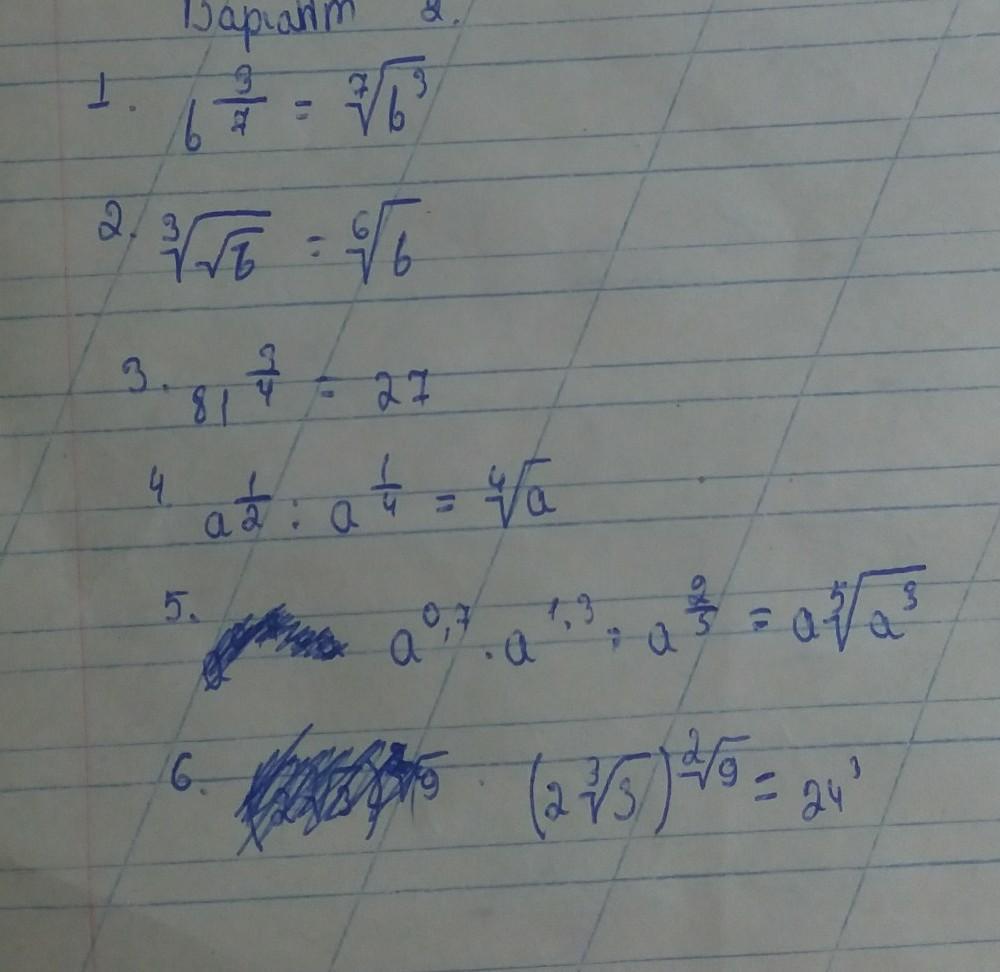 Варіант 2.
1. b^{3/7} = ⁷√b³
2. ³√√b = ⁶√b
3. 81^{3/4} = 27
4 a^{1/2} : a^{1/4} = ⁴√a
5. a^{0,7} · a^{1,3} : a^{2/5} = a⁵√a³
6. (2³√3)^{²√9} = 24³